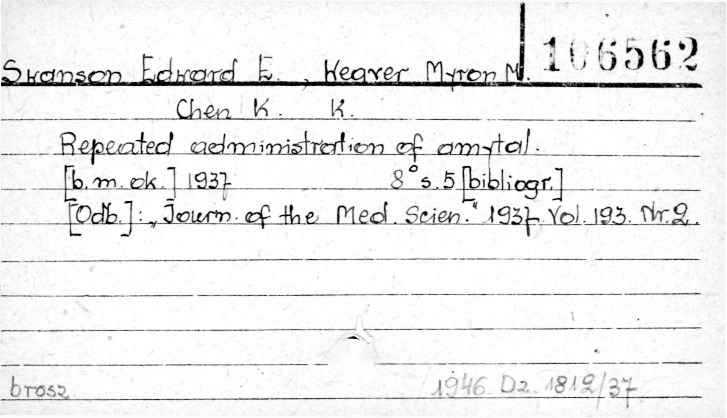 106562
Swanson Edward E., Weaver Myron M.
Chen K. K.
Repeated administration of amytal.
[b.m.ok.] 1937 8° s. 5 [bibliogr.]
[Odb.]: „Journ. of the Med. Scien." 1937. Vol. 193. Nr. 2.
brosz 1946. Dz. 1812/37